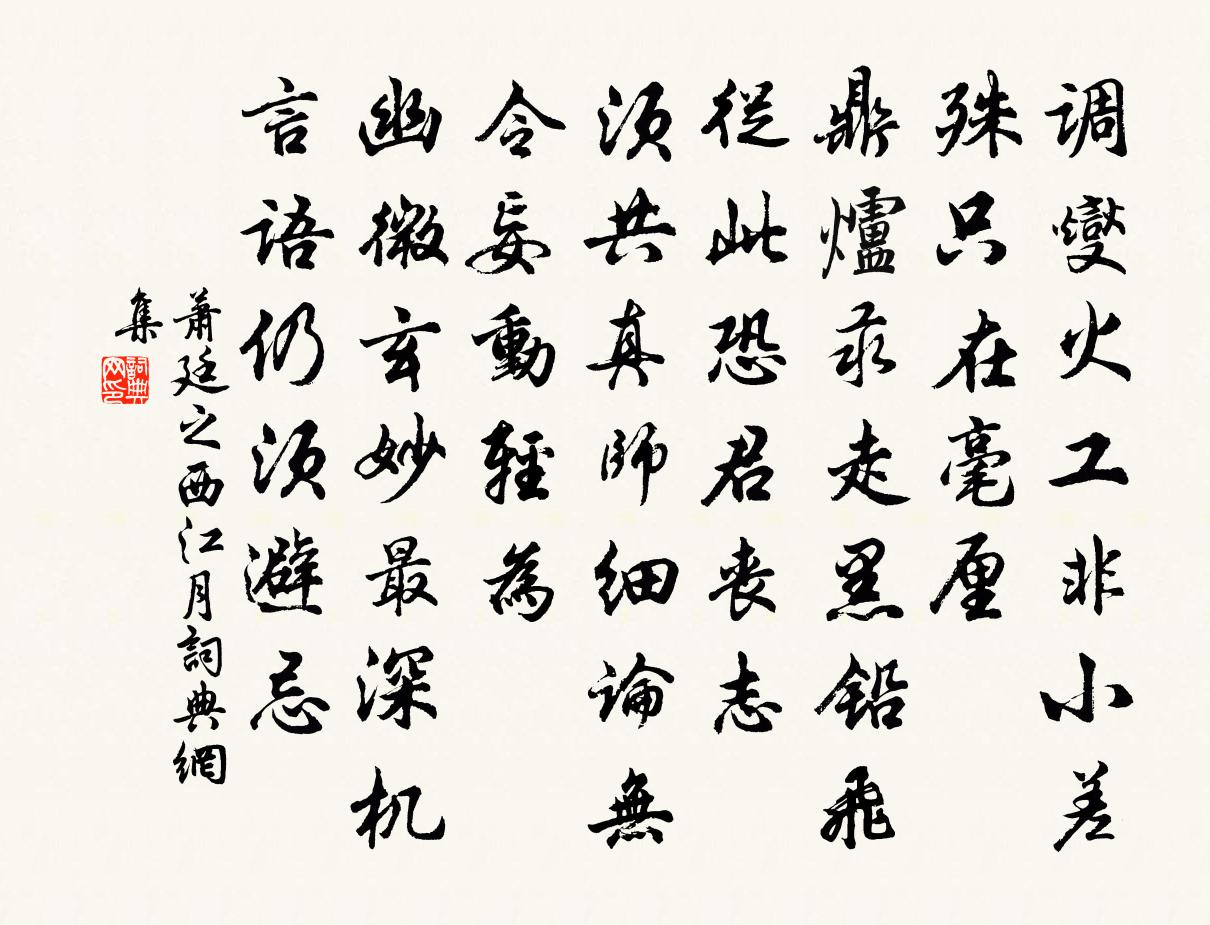 调燮火工非小差
殊只在毫厘
鼎爐汞走黑铅飛
從此恐君丧志
须共真师细論無
令妄動輕為
幽微玄妙最深机
言語仍须避忌
萧廷之西江月詞典網
集
詞典网印